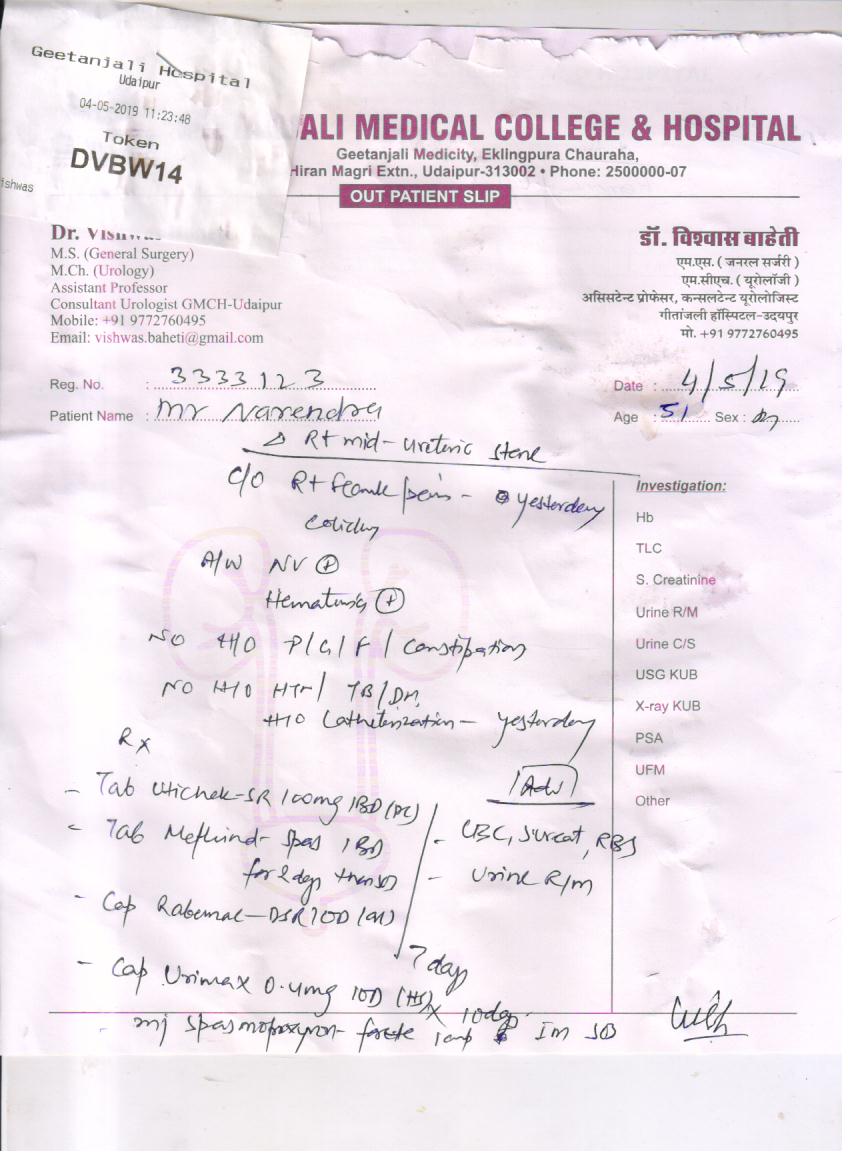 Geetanjali Hospital
Udaipur
04-05-2019 11:23:48
Token
DVBW14
ishwas
ALI MEDICAL COLLEGE & HOSPITAL
Geetanjali Medicity, Eklingpura Chauraha,
Hiran Magri Extn., Udaipur-313002 • Phone: 2500000-07
OUT PATIENT SLIP
Dr. Vishwas
M.S. (General Surgery)
M.Ch. (Urology)
Assistant Professor
Consultant Urologist GMCH-Udaipur
Mobile: +91 9772760495
Email: vishwas.baheti@gmail.com
डॉ. विश्वास बाहेती
एम.एस. ( जनरल सर्जरी )
एम.सीएच. ( यूरोलॉजी )
असिसटेन्ट प्रोफेसर, कन्सलटेन्ट यूरोलोजिस्ट
गीतांजली हॉस्पिटल-उदयपुर
मो. +91 9772760495
Reg. No. : 3333123
Date : 4/5/19
Patient Name : Mr Narendra
Age : 51 Sex : m
Δ Rt mid-ureteric stone
C/O Rt flank pain - yesterday
colicky
A/W NV +
Hematuria +
NO H/O P/G/F / Constipation
NO H/O HTN/ TB/DM
H/O Catheterization - yesterday
Investigation:
Hb
TLC
S. Creatinine
Urine R/M
Urine C/S
USG KUB
X-ray KUB
PSA
UFM
Other
Rx
- Tab SR 100mg 1BD (PC)
- Tab Meftind-spas 1BD
for 2 days then
- Cap DSR 1OD
7 day
- Cap Urimax 0.4mg 1OD (HS) x 10days
- Inj forte 1amp Im
Adv
- CBC, S.ureat, RBS
- Urine R/m